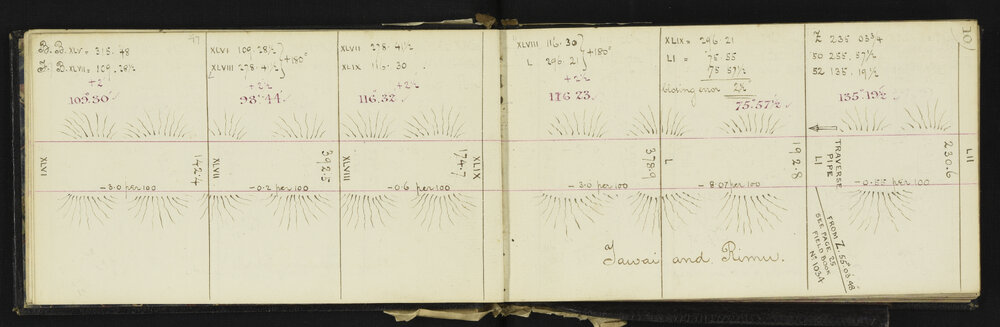 B. B. XLV = 315. 48
B. XLVII = 109. 28½
+2
109°.30'
XLVI 109. 28½
XLVIII 278. 41½
+180°
+2½
98°.44'
XLVII 278. 41½
XLIX 116. 30
+2½
116.32
XLVIII 116. 30
L 296. 21
+180°
+2½
116.23
XLIX = 296. 21
LI = 75. 55
75 57½
Closing error 2½
75°.57½
Z 235 03¾
50 255. 57½
52 135. 19½
135°.19½
101
XLVI
142.4
XLVII
392.5
XLVIII
174.7
XLIX
378.9
L
192.8
TRAVERSE
PIPE
LI
230.6
LII
-3.0 per 100
-0.2 per 100
-0.6 per 100
-3.0 per 100
-8.07 per 100
-0.55 per 100
FROM Z. 55° 03' 48"
SEE PAGE 25
FIELD BOOK
No 1034
Tawai and Rimu.